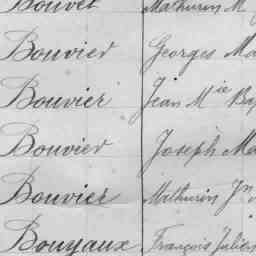 Bouvet Mathurin M
Bouvier Georges Ma
Bouvier Jean Mie Bap
Bouvier Joseph Ma
Bouvier Mathurin Jn
Bouyaux François Julien